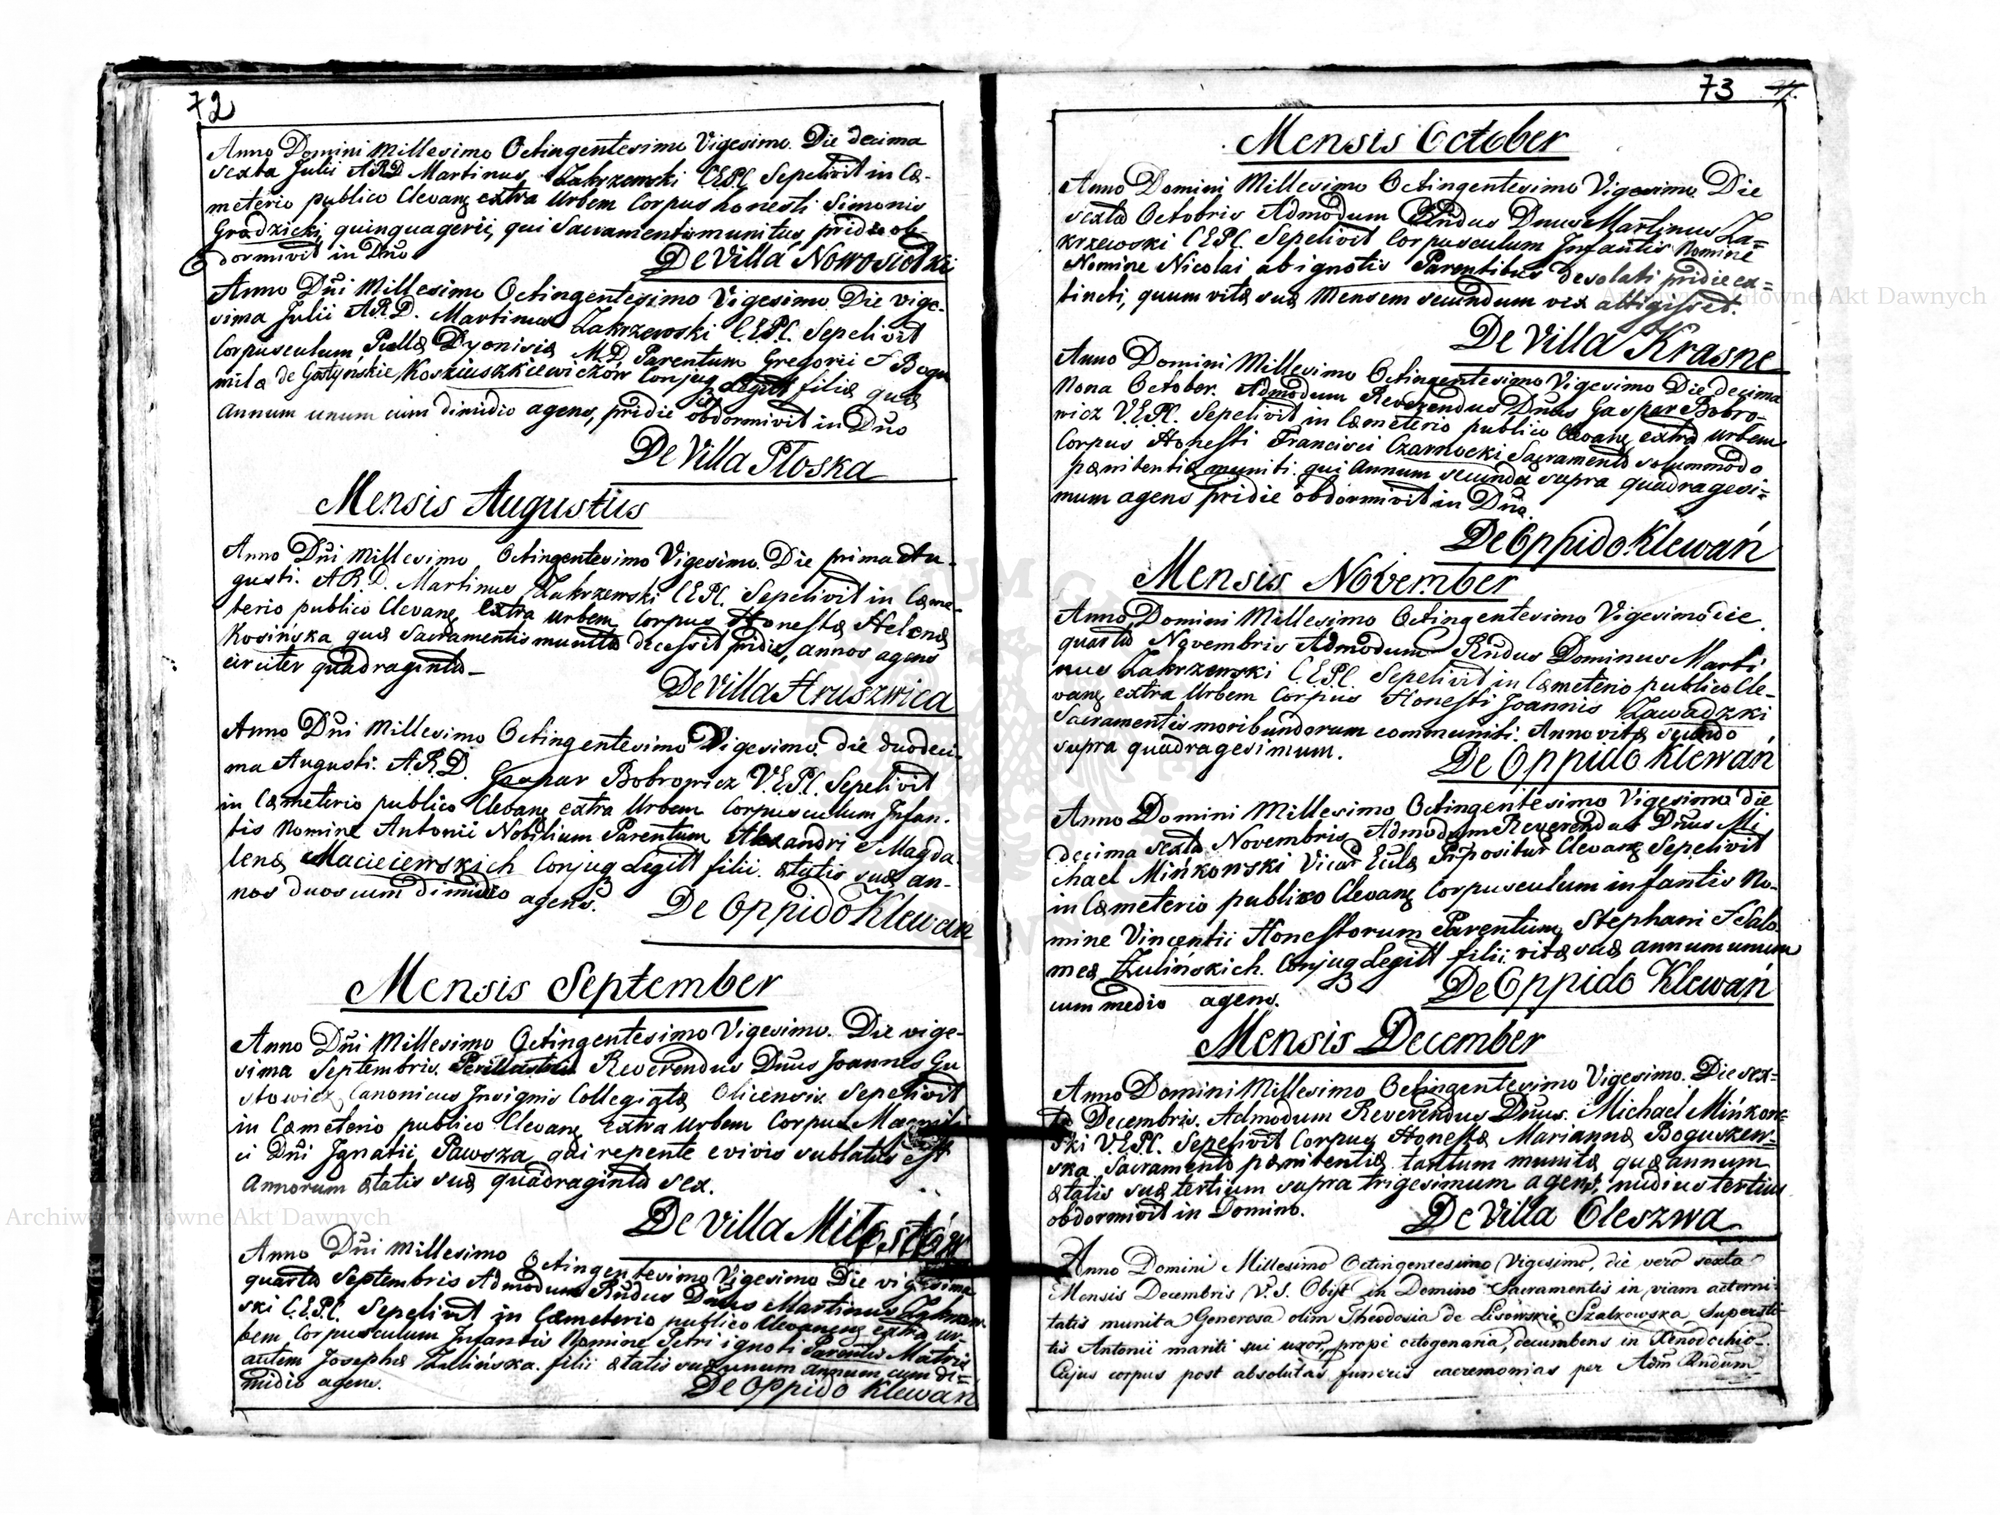 72
Anno Domini Millesimo Octingentesimo Vigesimo. Die decima
sexta Julii ARD Martinus Zakrzewski CEPC Sepelivit in Cæ-
meterio publico Clevanę extra Urbem Corpus honesti Simonis
Grodzicki, quinquagerii, qui Sacramentis munitus pridie ob-
dormivit in Dño
De Villa Nowosiołki
Anno Dñi Millesimo Octingentesimo Vigesimo Die vige-
sima Julii A.R.D. Martinus Zakrzewski C.EPC. Sepelivit
Corpusculum Puellæ Dyonisiæ M.D. Parentum Gregorii & Bogu
milæ de Gostyńskie Kosziuszkiewiczów Conjug Legitt filiæ quæ
Annum unum cum dimidio agens, pridie obdormivit in Dño
De Villa Płoska
Mensis Augustus
Anno Dñi Millesimo Octingentesimo Vigesimo. Die prima Au-
gusti. A.R.D. Martinus Zakrzewski CEPC. Sepelivit in Cæme-
terio publico Clevanę extra Urbem Corpus Honestæ Helenæ
Kosińska quæ Sacramentis munita decessit pridie, annos agens
circiter quadraginta-
De Villa Hruszwica
Anno Dñi Millesimo Octingentesimo Vigesimo. die duodeci-
ma Augusti. A.R.D. Gaspar Bobrowicz V.EPC. Sepelivit
in Cæmeterio publico Clevanę extra Urbem Corpusculum Infan-
tis Nomine Antonii Nobilium Parentum Alexandri & Magda
lenæ Macieiewskich Conjug Legitt filii. ætatis suæ an-
nos duos cum dimidio agens.
De Oppido Klewan
Mensis September
Anno Dñi Millesimo Octingentesimo Vigesimo. Die vige-
sima Septembris. Perillustris Reverendus Dnus Joannes Gu
stowicz Canonicus Insignis Collegiatæ Olicensis Sepelivit
in Cæmeterio publico Clevanę extra Urbem Corpus
ci Dñi Ignatii Pawsza, qui repente e vivis sublatus est
Annorum ætatis suæ quadraginta sex.
De Villa
Anno Dñi Millesimo Octingentesimo Vigesimo Die vigesima
quarta Septembris Admodum Rndus Dnus Martinus
ski C.EPC. Sepelivit in Cæmeterio publico extra ur-
bem Corpusculum Infantis Nomine Petri ignoti Parentis Matris
autem Josephæ Zulińska. filii ætatis suæ unum annum cum di=
midio agens.
De Oppido Klewań
73
Mensis October
Anno Domini Millesimo Octingentesimo Vigesimo. Die
sexta Octobris Admodum Rndus Dnus Martinus Za=
krzewski C.EPC. Sepelivit Corpusculum Infantis Nomine
Nomine Nicolai ab ignotis Parentibus desolati pridie ex=
tincti, quum vitæ suæ Mensem secundum vix attigisset.
De Villa Krasne
Anno Domini Millesimo Octingentesimo Vigesimo Die decima
Nona October. Admodum Reverendus Dnus Gaspar Bobro-
wicz V.EPC. Sepelivit in Cæmeterio publico Clevanę extra Urbem
Corpus Honesti Francisci Czarnocki Sacramento solummodo
pænitentiæ muniti. qui Annum secundu supra quadragesi=
mum agens pridie obdormivit in Dño.
De Oppido Klewań
Mensis November
Anno Domini Millesimo Octingentesimo Vigesimo die
quarta Novembris Admodum Rndus Dominus Marti
nus Zakrzewski C.EPC. Sepelivit in Cæmeterio publico Cle-
vanę extra Urbem Corpus Honesti Joannis Zawadzki
Sacramentis moribundorum communiti. Anno vitæ
supra quadragesimum.
De Oppido Klewań
Anno Domini Millesimo Octingentesimo Vigesimo die
decima sexta Novembris Admodum Reverendus Dnus Mi
chael Mińkowski Vicar Eccłæ Præpositur Clevanę Sepelivit
in Cæmeterio publico Clevanę Corpusculum infantis No-
mine Vincentii Honestorum Parentum Stephani & Salo
meæ Zulińskich. Conjug Legitt filii vitæ suæ annum unum
cum medio agens.
De Oppido Klewań
Mensis December
Anno Domini Millesimo Octingentesimo Vigesimo. Die sex=
ta Decembris. Admodum Reverendus Dnus. Michael Mińkow=
ski V.EPC. Sepelivit Corpus Honestæ Mariannæ Boguszew=
ska Sacramento pænitentiæ tantum munitæ quæ annum
ætatis suæ tertium supra trigesimum agens, nudius tertius
obdormivit in Domino.
De Villa Oleszwa
Anno Domini Millesimo Octingentesimo Vigesimo, die vero sexta
Mensis Decembris V.S. Obijt in Domino Sacramentis in viam aeterni-
tatis munita Generosa olim Theodosia de Lisowskie Szalkowska, Supersti-
tis Antonii mariti sui uxor, propè octogenaria, decumbens in Xenodochio.
Cujus corpus post absolutas funeris caeremonias per Adm Rndum
Archiwum Główne Akt Dawnych
Archiwum Główne Akt Dawnych